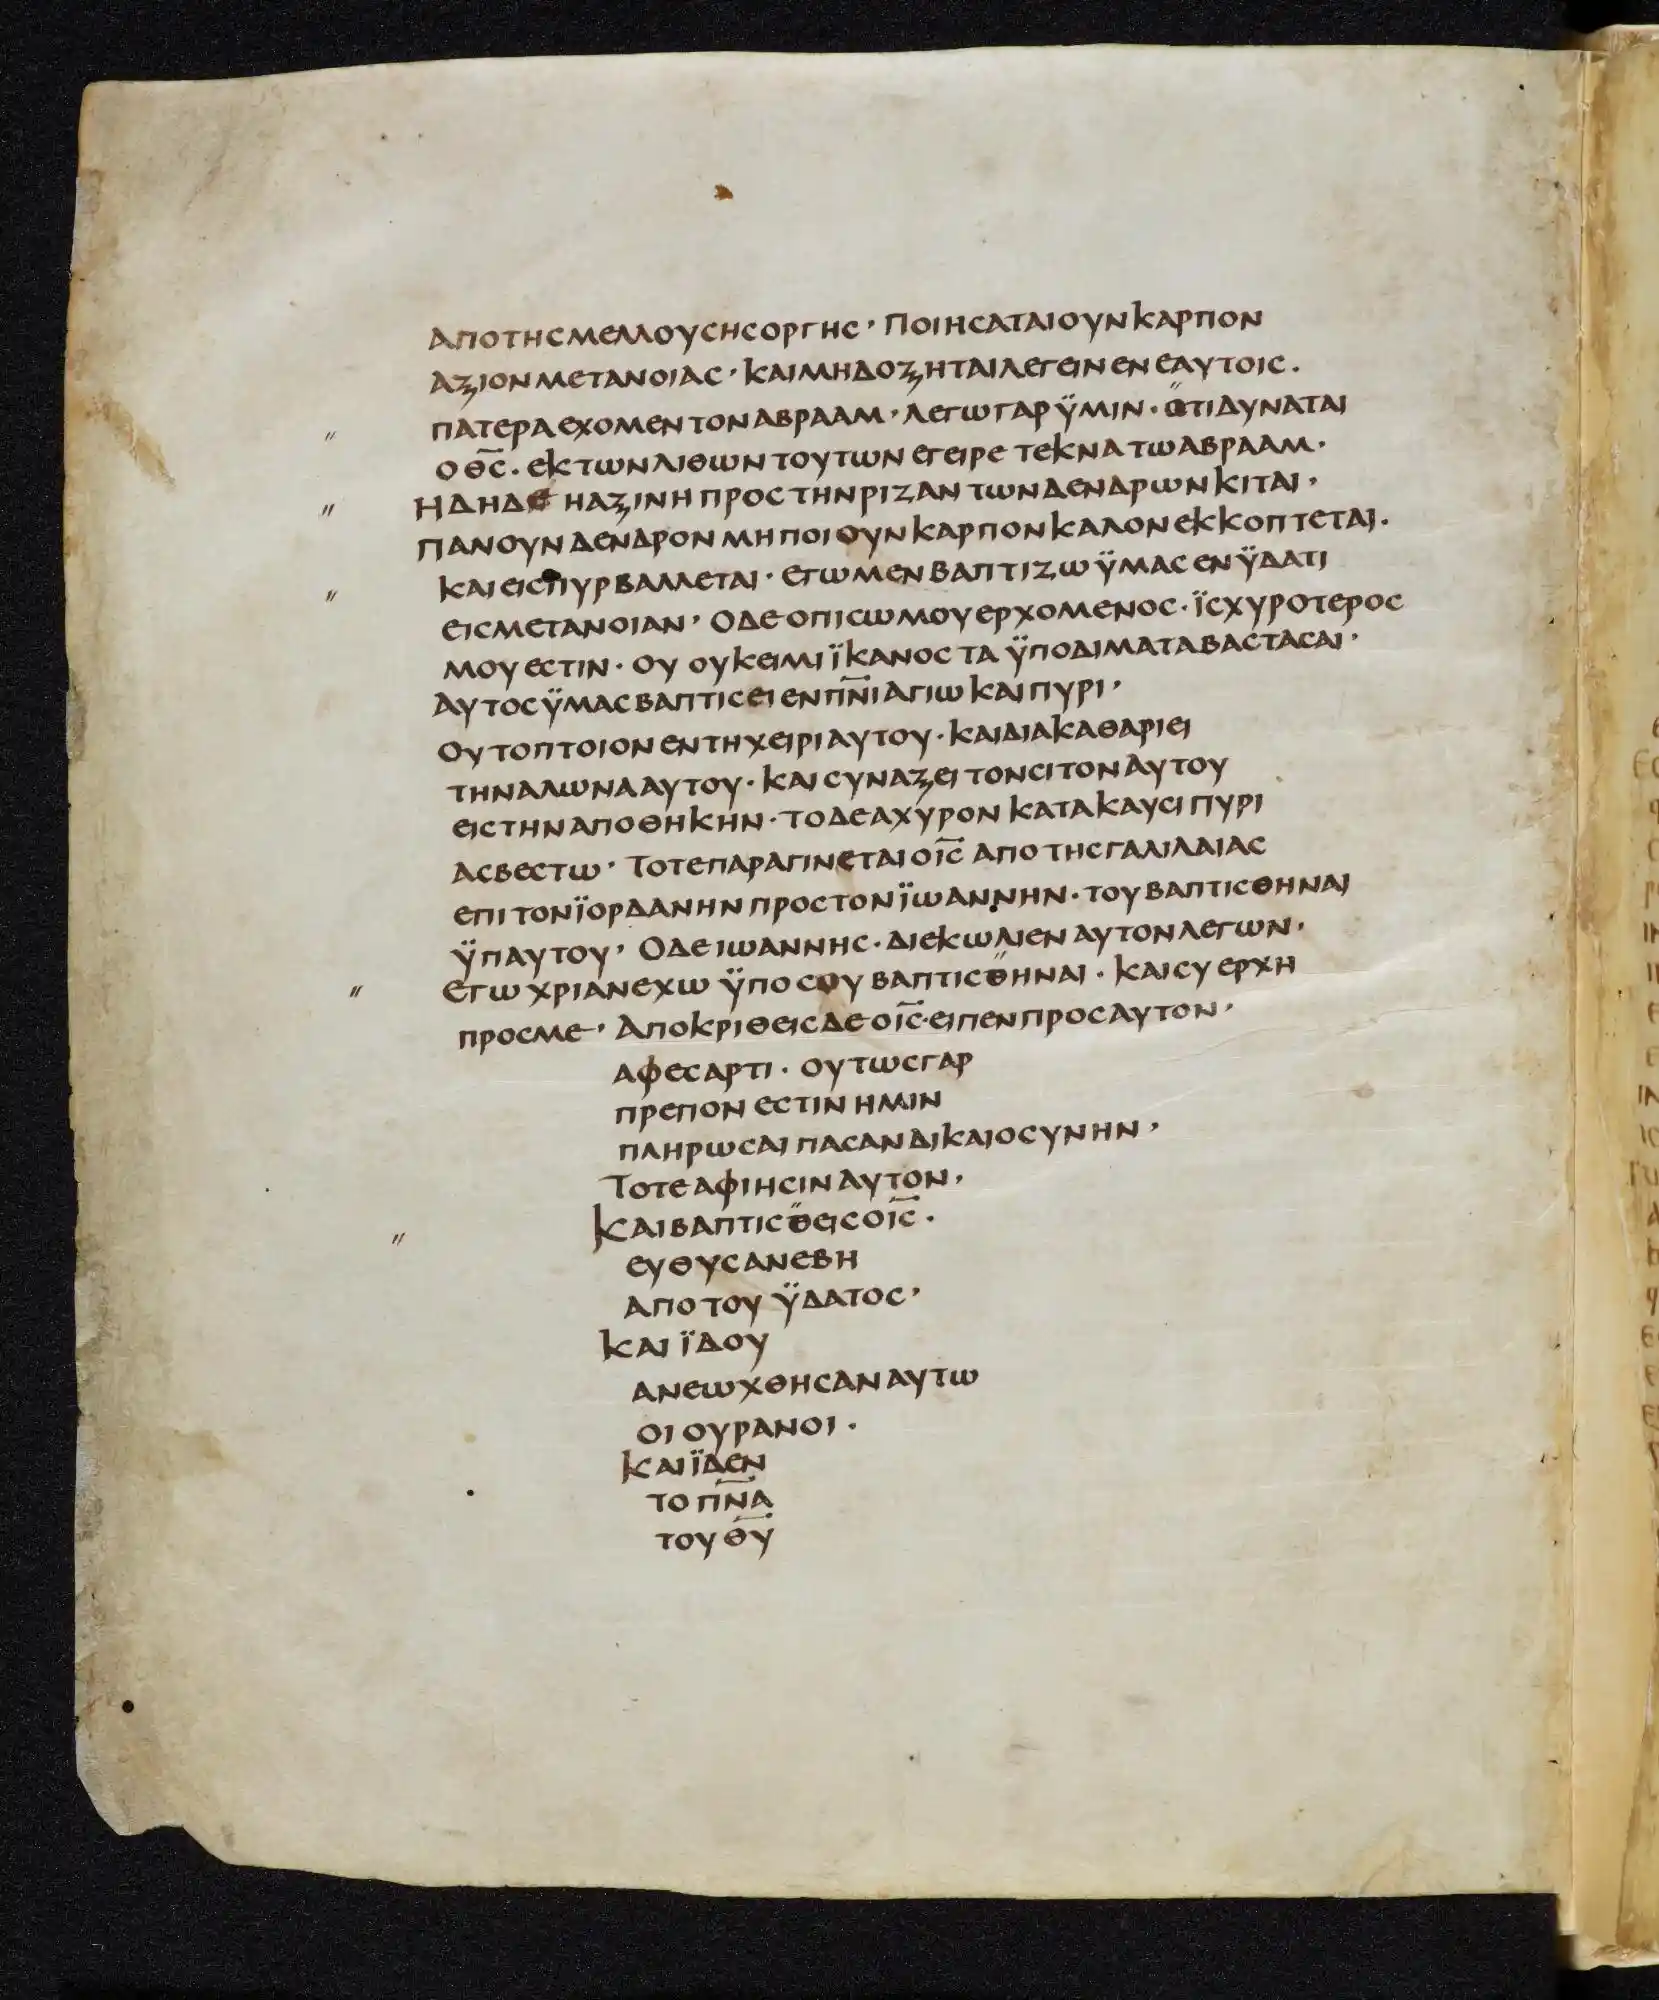 αποτησμελλουσησοργησ· Ποιησαταιουνκαρπον
αξιονμετανοιασ· καιμηδοξηταιλεγεινενεαυτοισ.
πατεραεχομεντοναβρααμ· λεγωγαρϋμιν· οτιδυναται
οθ̅σ̅· εκτωνλιθωντουτωνεγειρετεκνατωαβρααμ·
Ηδηδεηαξινηπροστηνριζαντωνδενδρωνκιται·
πανουνδενδρονμηποιουνκαρπονκαλονεκκοπτεται.
καιεισπυρβαλλεται· εγωμενβαπτιζωϋμασενϋδατι
εισμετανοιαν· Οδεοπισωμουερχομενοσ· ϊσχυροτεροσ
μουεστιν· ουουκειμιϊκανοσταϋποδιματαβαστασαι·
Αυτοσϋμασβαπτισειενπ̅ν̅ιαγιωκαιπυρι·
Ουτοπτοιονεντηχειριαυτου· καιδιακαθαριει
τηναλωνααυτου· καισυναξειτονσιτοναυτου
ειστηναποθηκην· τοδεαχυρονκατακαυσιπυρι
ασβεστω· Τοτεπαραγινεταιοι̅σ̅αποτησγαλιλαιασ
επιτονϊορδανηνπροστονϊωαννην· τουβαπτισθηναι
ϋπαυτου· Οδειωαννησ· διεκωλιεναυτονλεγων·
Εγωχριανεχωϋποσουβαπτισθηναι· καισυερχη
προσμε· Αποκριθεισδεοι̅σ̅·ειπενπροσαυτον·
αφεσαρτι· ουτωσγαρ
πρεπονεστινημιν
πληρωσαιπασανδικαιοσυνην·
Τοτεαφιησιναυτον·
Καιβαπτισθεισοι̅σ̅·
ευθυσανεβη
αποτουϋδατοσ·
Καιϊδου
ανεωχθησαναυτω
οιουρανοι·
Καιϊδεν
τοπ̅ν̅α
τουθ̅υ̅